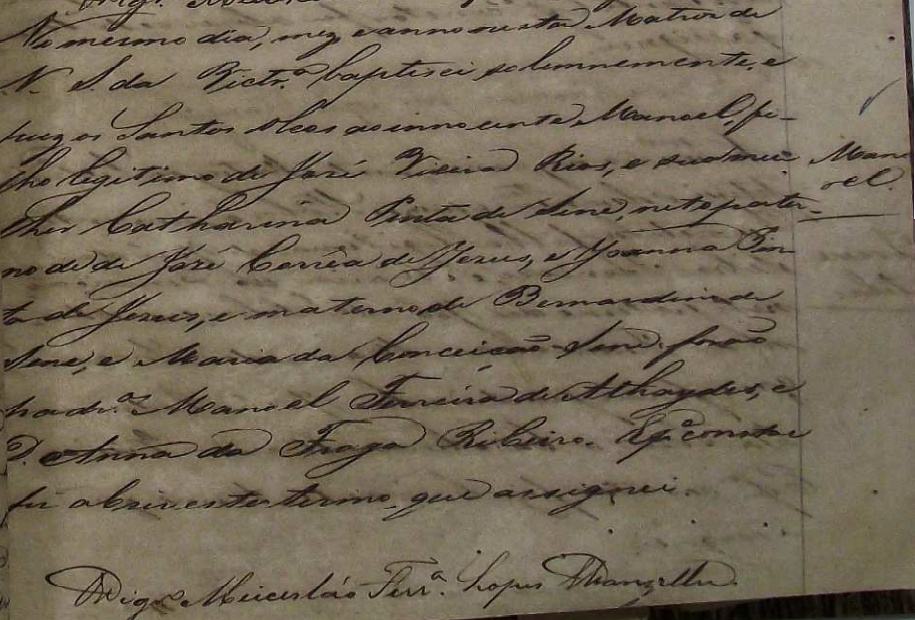 No mesmo dia, mez e anno nesta Matriz de
N. S. da Victr.ª baptisei solemnemente, e
puz os Santos Oleos ao innocente Manoel, fi-
lho legitimo de José Vieira Rios, e sua mu
lher Catharina Pinta de Sene, neto pater-
no de de José Corrêa de Jesus, e Joanna Pin
ta de Jesus, e materno de Bernardino de
Sene, e Maria da Conceição Sene. forão
padr.os Manoel Ferreira de Athaydes, e
D. Anna da Fraga Ribeiro. E p.ª constar
fiz abrir este termo, que assignei.
Vig.ro Miceslão Ferr.ª Lopes
Mano
el.